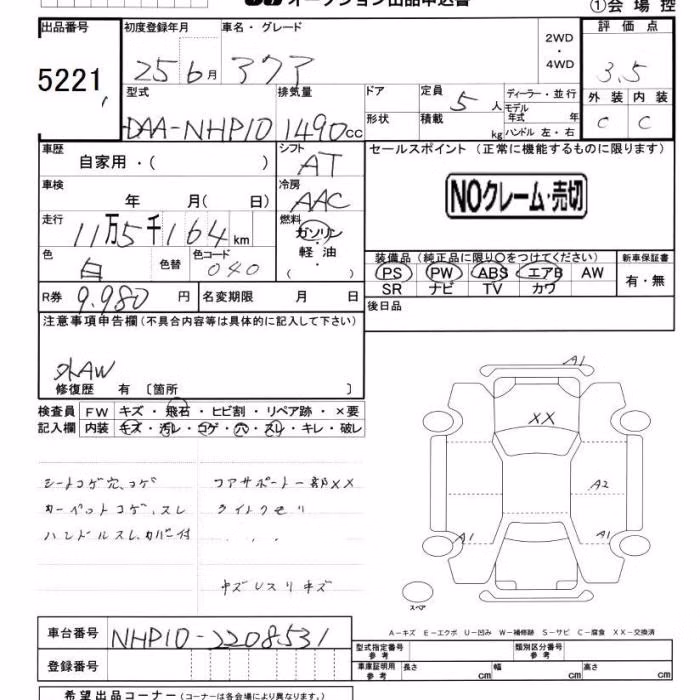 オークション出品申込書 ①会場控
出品番号 初度登録年月 車名・グレード 2WD・4WD 評価点
5221 25 6月 アクア 3.5
型式 排気量 ドア 定員 5人 ディーラー・並行 外装 内装
DAA-NHP10 1490cc 形状 積載 kg モデル年式 年 C C
ハンドル 左・右
車歴 シフト セールスポイント (正常に機能するものに限ります)
自家用・( ) AT
車検 冷房 NOクレーム・売切
年 月( 日) AAC
走行 燃料
11万5千164km ガソリン
色 色替 色コード 軽油 装備品 (純正品に限り○をつけてください) 新車保証書
白 040 ( ・ ) PS PW ABS エアB AW 有・無
SR ナビ TV カワ
R券 9.980円 名変期限 月 日 後日品
注意事項申告欄 (不具合内容等は具体的に記入して下さい)
外AW A1
修復歴 有 〔箇所 〕
検査員 FW キズ・飛石・ヒビ割・リペア跡・×要 XX
記入欄 内装 キズ・汚レ・コゲ・穴・スレ・キレ・破レ
シートコゲ穴、コゲ コアサポート一部XX A2
カーペットコゲ、スレ ライトクモリ
ハンドルスレ、カバー付 A1 A1
キズ
スペア
A－キズ E－エクボ U－凹み W－補修跡 S－サビ C－腐食 XX－交換済
車台番号 NHP10-2208531 型式指定番号 参考 類別区分番号 参考
登録番号 車庫証明用 参考 長さ cm 幅 cm 高さ cm
希望出品コーナー (コーナーは各会場により異なります。)